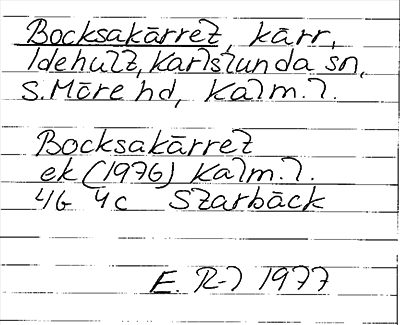 Bocksakärret, kärr,
Idehult, Karlslunda sn,
S. Möre hd, Kalm. l.
Bocksakärret
ek (1976) Kalm. l.
4G 4c Starbäck
E. R-l 1977